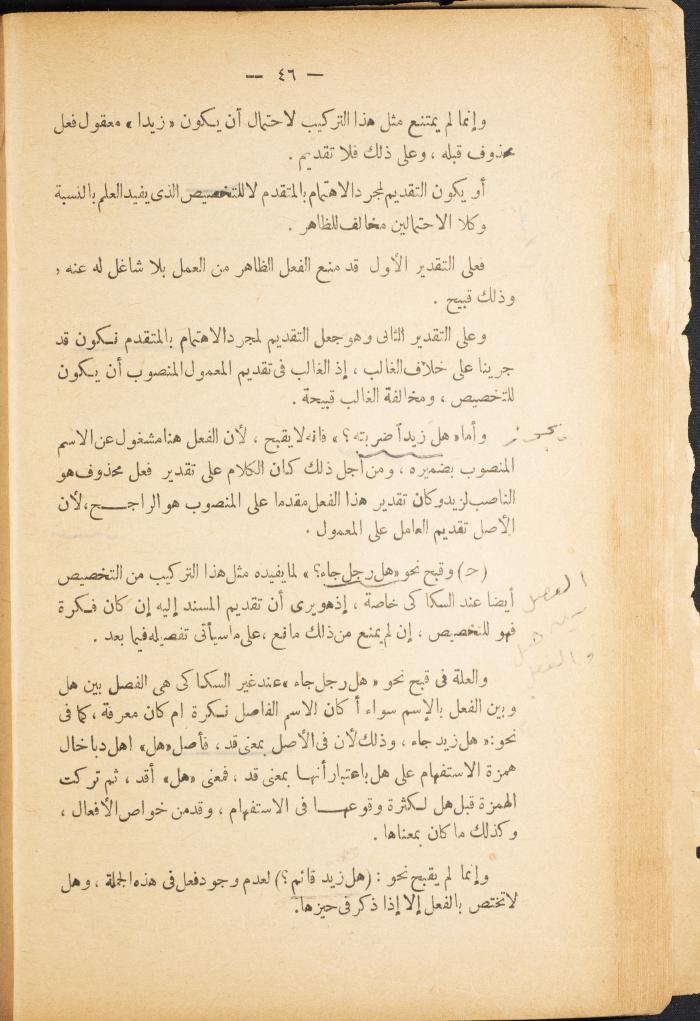 — ٤٦ —
وإنما لم يمتنع مثل هذا التركيب لاحتمال أن يكون « زيدا » معقول فعل
محذوف قبله ، وعلى ذلك فلا تقديم .
أو يكون التقديم لمجرد الاهتمام بالمتقدم لاللتخصيص الذى يفيد العلم بالنسبة
وكلا الاحتمالين مخالف للظاهر .
فعلى التقدير الأول قد منع الفعل الظاهر من العمل بلا شاغل له عنه ,
وذلك قبيح .
وعلى التقدير الثانى وهو جعل التقديم لمجرد الاهتمام بالمتقدم نكون قد
جرينا على خلاف الغالب ، إذ الغالب فى تقديم المعمول المنصوب أن يكون
للتخصيص ، ومخالفة الغالب قبيحة .
وأما « هل زيداً ضربته ؟ » فانه لا يقبح ، لأن الفعل هنا مشغول عن الاسم
ويجوز
المنصوب بضميره ، ومن أجل ذلك كان الكلام على تقدير فعل محذوف هو
الناصب لزيد وكان تقدير هذا الفعل مقدما على المنصوب هو الراجح ، لأن
الأصل تقديم العامل على المعمول .
(ح) وقبح نحو « هل رجل جاء؟ » لما يفيده مثل هذا التركيب من التخصيص
أيضا عند السكاكى خاصة ، إذ هو يرى أن تقديم المسند إليه إن كان فكرة
فهو للتخصيص ، إن لم يمنع من ذلك مانع ، على ما سيأتى تفصيله فيما بعد .
الفصل
بين هل
والفعل
والعلة فى قبح نحو « هل رجل جاء » عند غير السكاكى هى الفصل بين هل
وبين الفعل بالإسم سواء أكان الاسم الفاصل نكرة ام كان معرفة ، كما فى
نحو : « هل زيد جاء ، وذلك لأن فى الأصل بمعنى قد ، فأصل «هل» اهل دباخال
همزة الاستفهام على هل باعتبار أنها بمعنى قد ، فمعنى «هل» أقد ، ثم تركت
الهمزة قبل هل لكثرة وقوعها فى الاستفهام ، وقد من خواص الأفعال ،
وكذلك ما كان بمعناها .
وإنما لم يقبح نحو : (هل زيد قائم ؟) لعدم وجود فعل فى هذه الجملة ، وهل
لا تختص بالفعل إلا إذا ذكر فى حيزها.